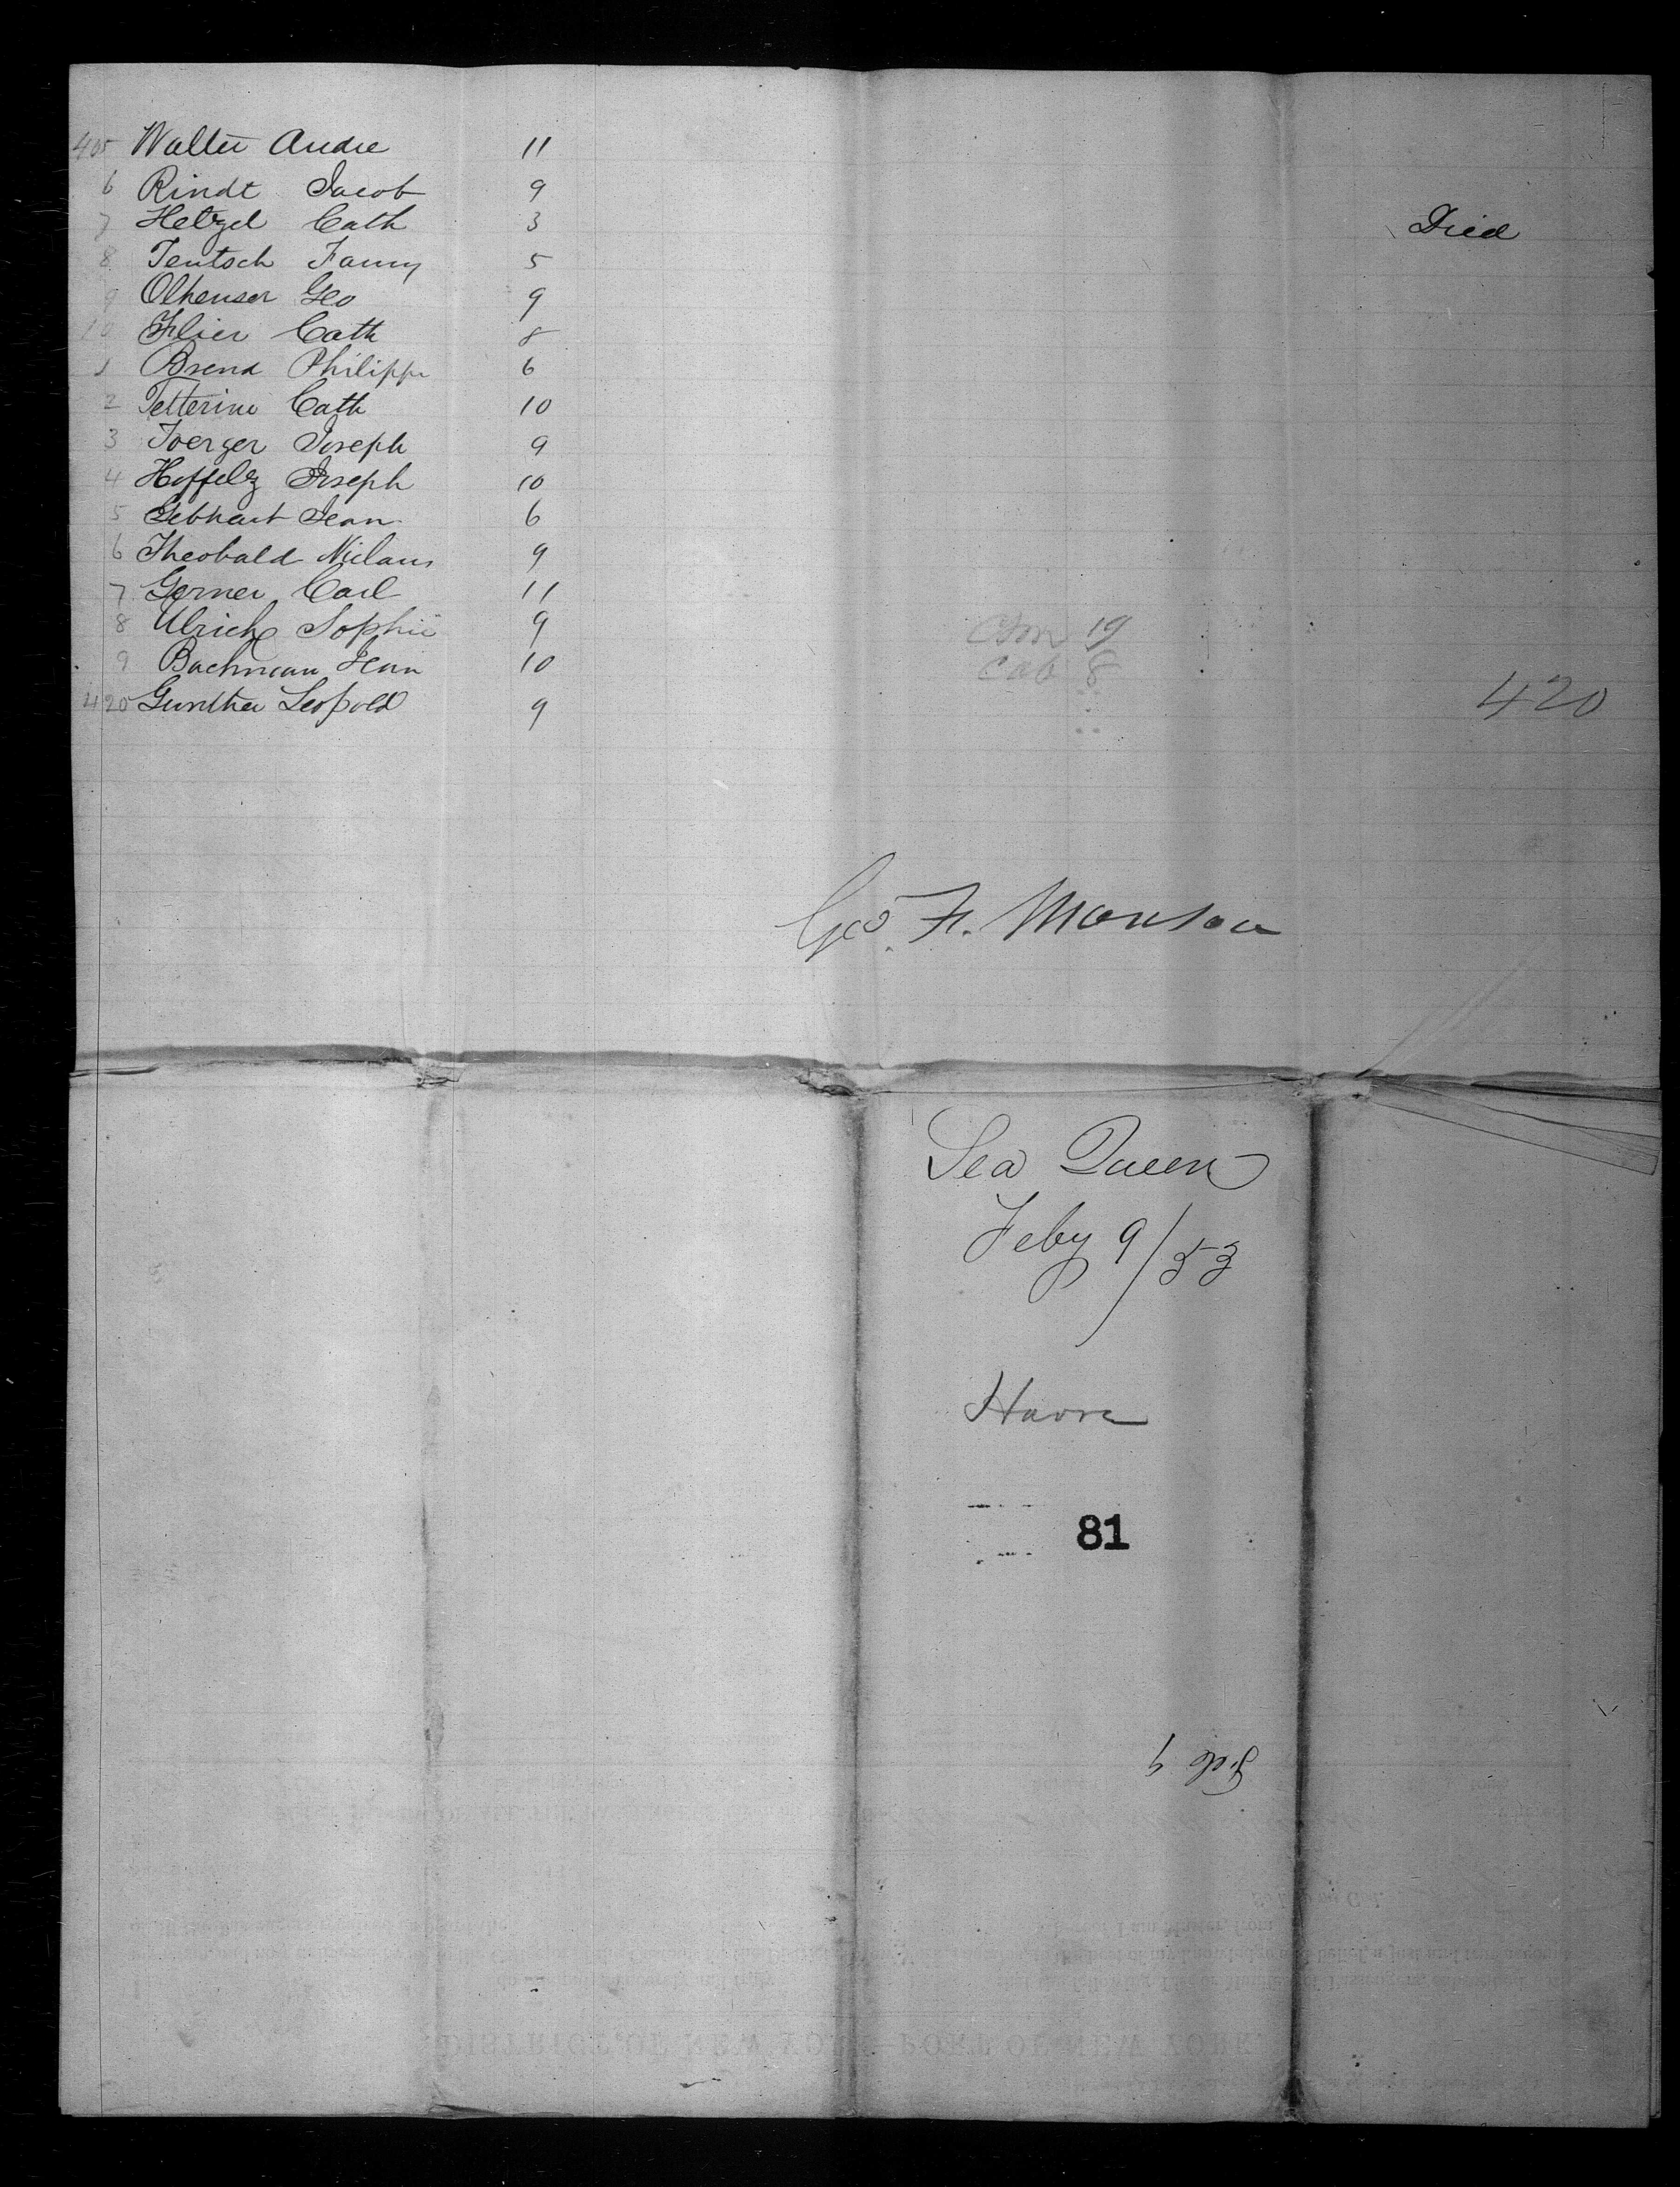 405 Walter Andre 11
6 Rindt Jacob 9
7 Hetzel Cath 3 Died
8 Teutsch Fanny 5
9 Olhenser Geo 9
10 Flier Cath 8
1 Brend Philippe 6
2 Tetterine Cath 10
3 Joerger Joseph 9
4 Hoffelz Joseph 10
5 Gebhart Jean 6
6 Theobald Niclaus 9
7 Gerner Carl 11
8 Ulrich Sophie 9
19
9 Bachman Jean 10
Cab 8
420 Gunther Leopold 9 420
Geo. F. Monson
Sea Queen
Feby 9/53
Havre
81
Feb 9
DISTRICT OF NEW YORK—PORT OF NEW YORK